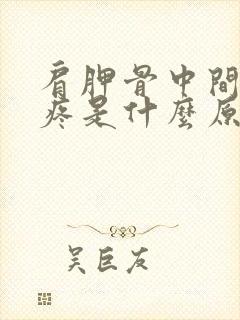 肩胛骨中間
疼是什麼原
吳巨友